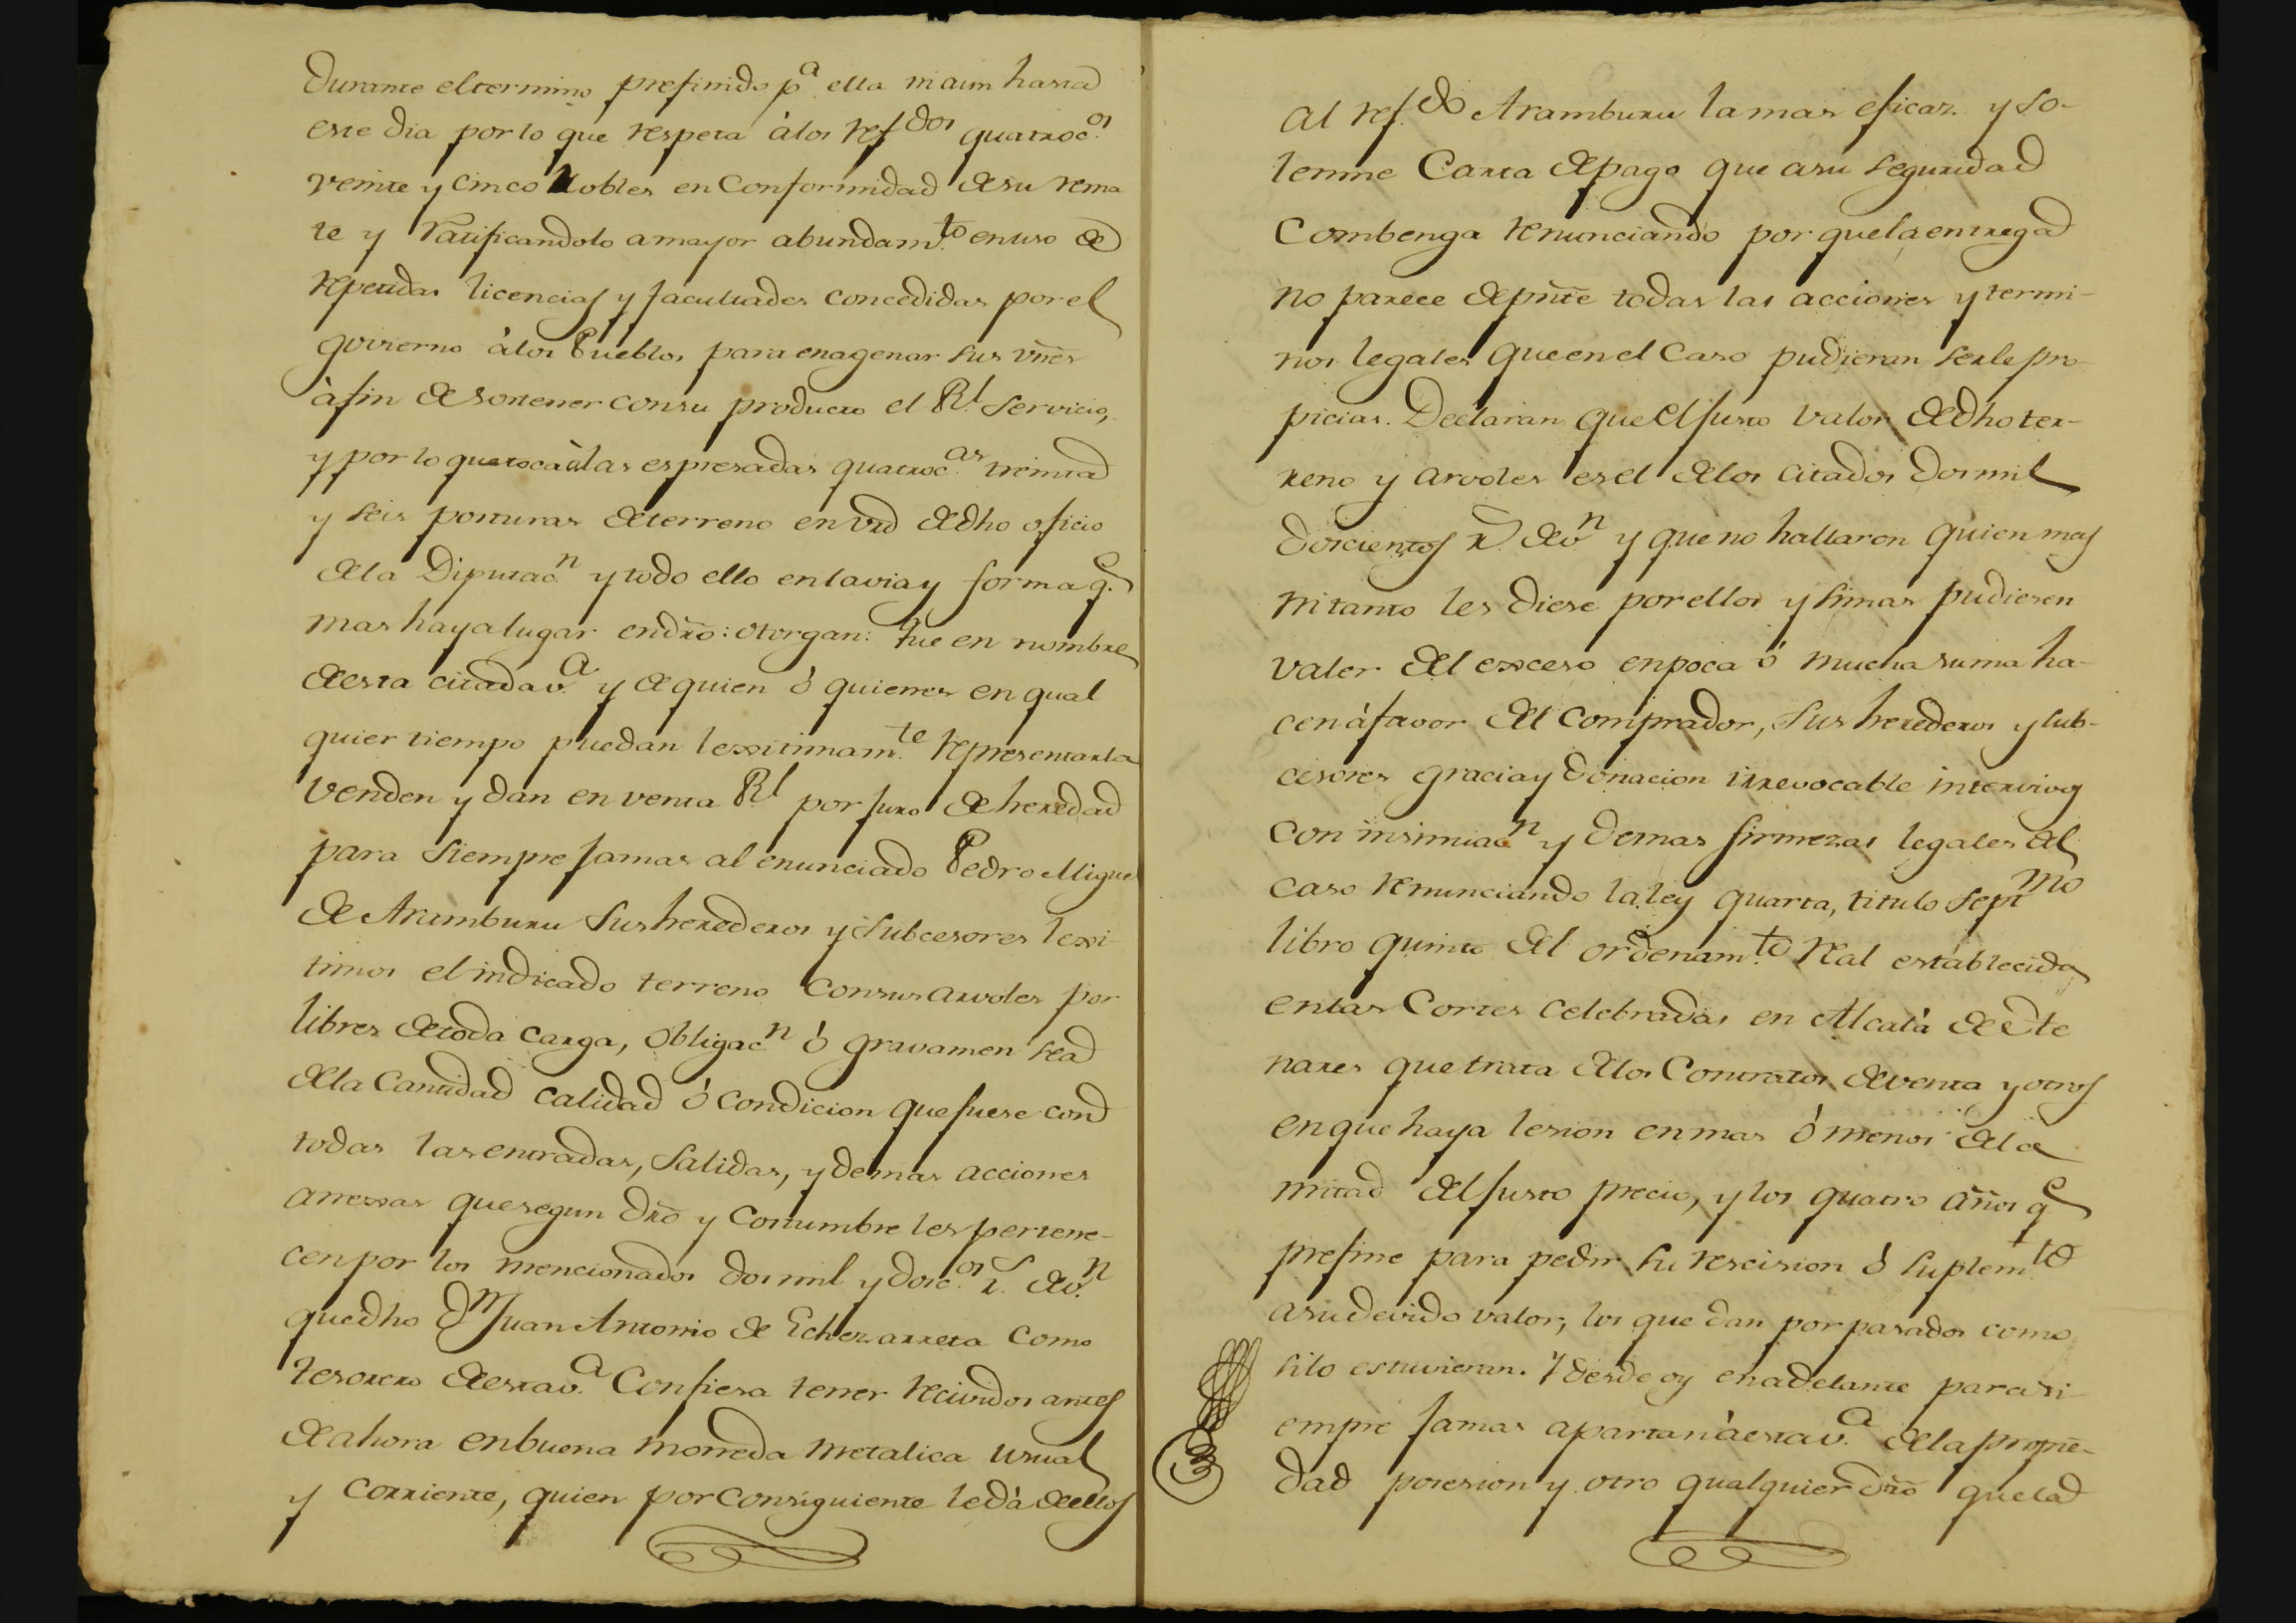 Durante el termino prefinido pª ella ni aun hasta
este dia por lo que respeta à los refdos quatroc.os
veinte y cinco Robles en Conformidad de su rema
te y ratificandolo a mayor abundam.to en uso de
repetidas licencias y facultades concedidas por el
govierno à los Pueblos para enagenar sus vñes
à fin de sostener con su producto el Rl servicio,
y por lo que toca à las espresadas quatroc.as treinta
y seis posturas de terreno en vrd de dho oficio
de la Diputacn y todo ello en la via y forma q.e
mas haya lugar en dro: otorgan: Que en nombre
de esta citada v.a y de quien ó quienes en qual
quier tiempo puedan lexitimam.te representarla
Venden y dan en venta Rl por juro de heredad
para siempre jamas al enunciado Pedro Miguel
de Aramburu sus herederos y subcesores lexi-
timos el indicado terreno con sus arvoles por
libres de toda carga, obligac.n ó gravamen sea
de la Cantidad calidad ó condicion que fuese con
todas las entradas, salidas, y demas acciones
anexas que segun dro y costumbre les pertene-
cen por los mencionados dos mil y dosc.os r.s de v.n
que dho Dn Juan Antonio de Echezarreta como
tesorero de esta v.a Confiesa tener recividos antes
de ahora en buena moneda metalica usual
y corriente, quien por consiguiente le dà de ellos
al ref.do Aramburu la mas eficaz y so-
lemne Carta de pago que a su seguridad
Combenga renunciando por que la entrega
no parece de pnte todas las acciones y termi-
nos legales que en el Caso pudieran serle pro-
picias. Declaran que el justo valor de dho ter-
reno y arvoles es el de los citados dos mil
doscientos r.s de v.n y que no hallaron quien mas
ni tanto les diese por ellos y si mas pudiesen
valer del exceso en poca ó mucha suma ha-
cen à favor del comprador, sus herederos y sub-
cesores gracia y donacion irrevocable intervivos
con insinuacn y demas firmezas legales del
caso renunciando la ley quarta, titulo septmo
libro quinto del ordenam.to Real establecida
en las Cortes celebradas en Alcalá de He
nares que trata de los Contratos de venta y otros
en que haya lesion en mas ó menos de la
mitad del justo precio, y los quatro años q.e
prefine para pedir su rescision ó suplem.to
a su devido valor, los que dan por pasados como
si lo estuvieran. Y desde oy en adelante para si-
empre jamas apartan à esta v.a de la propie-
dad posesion y otro qualquier dro que la